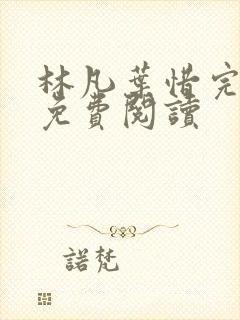 林凡葉惜完
免費閱讀
諾梵